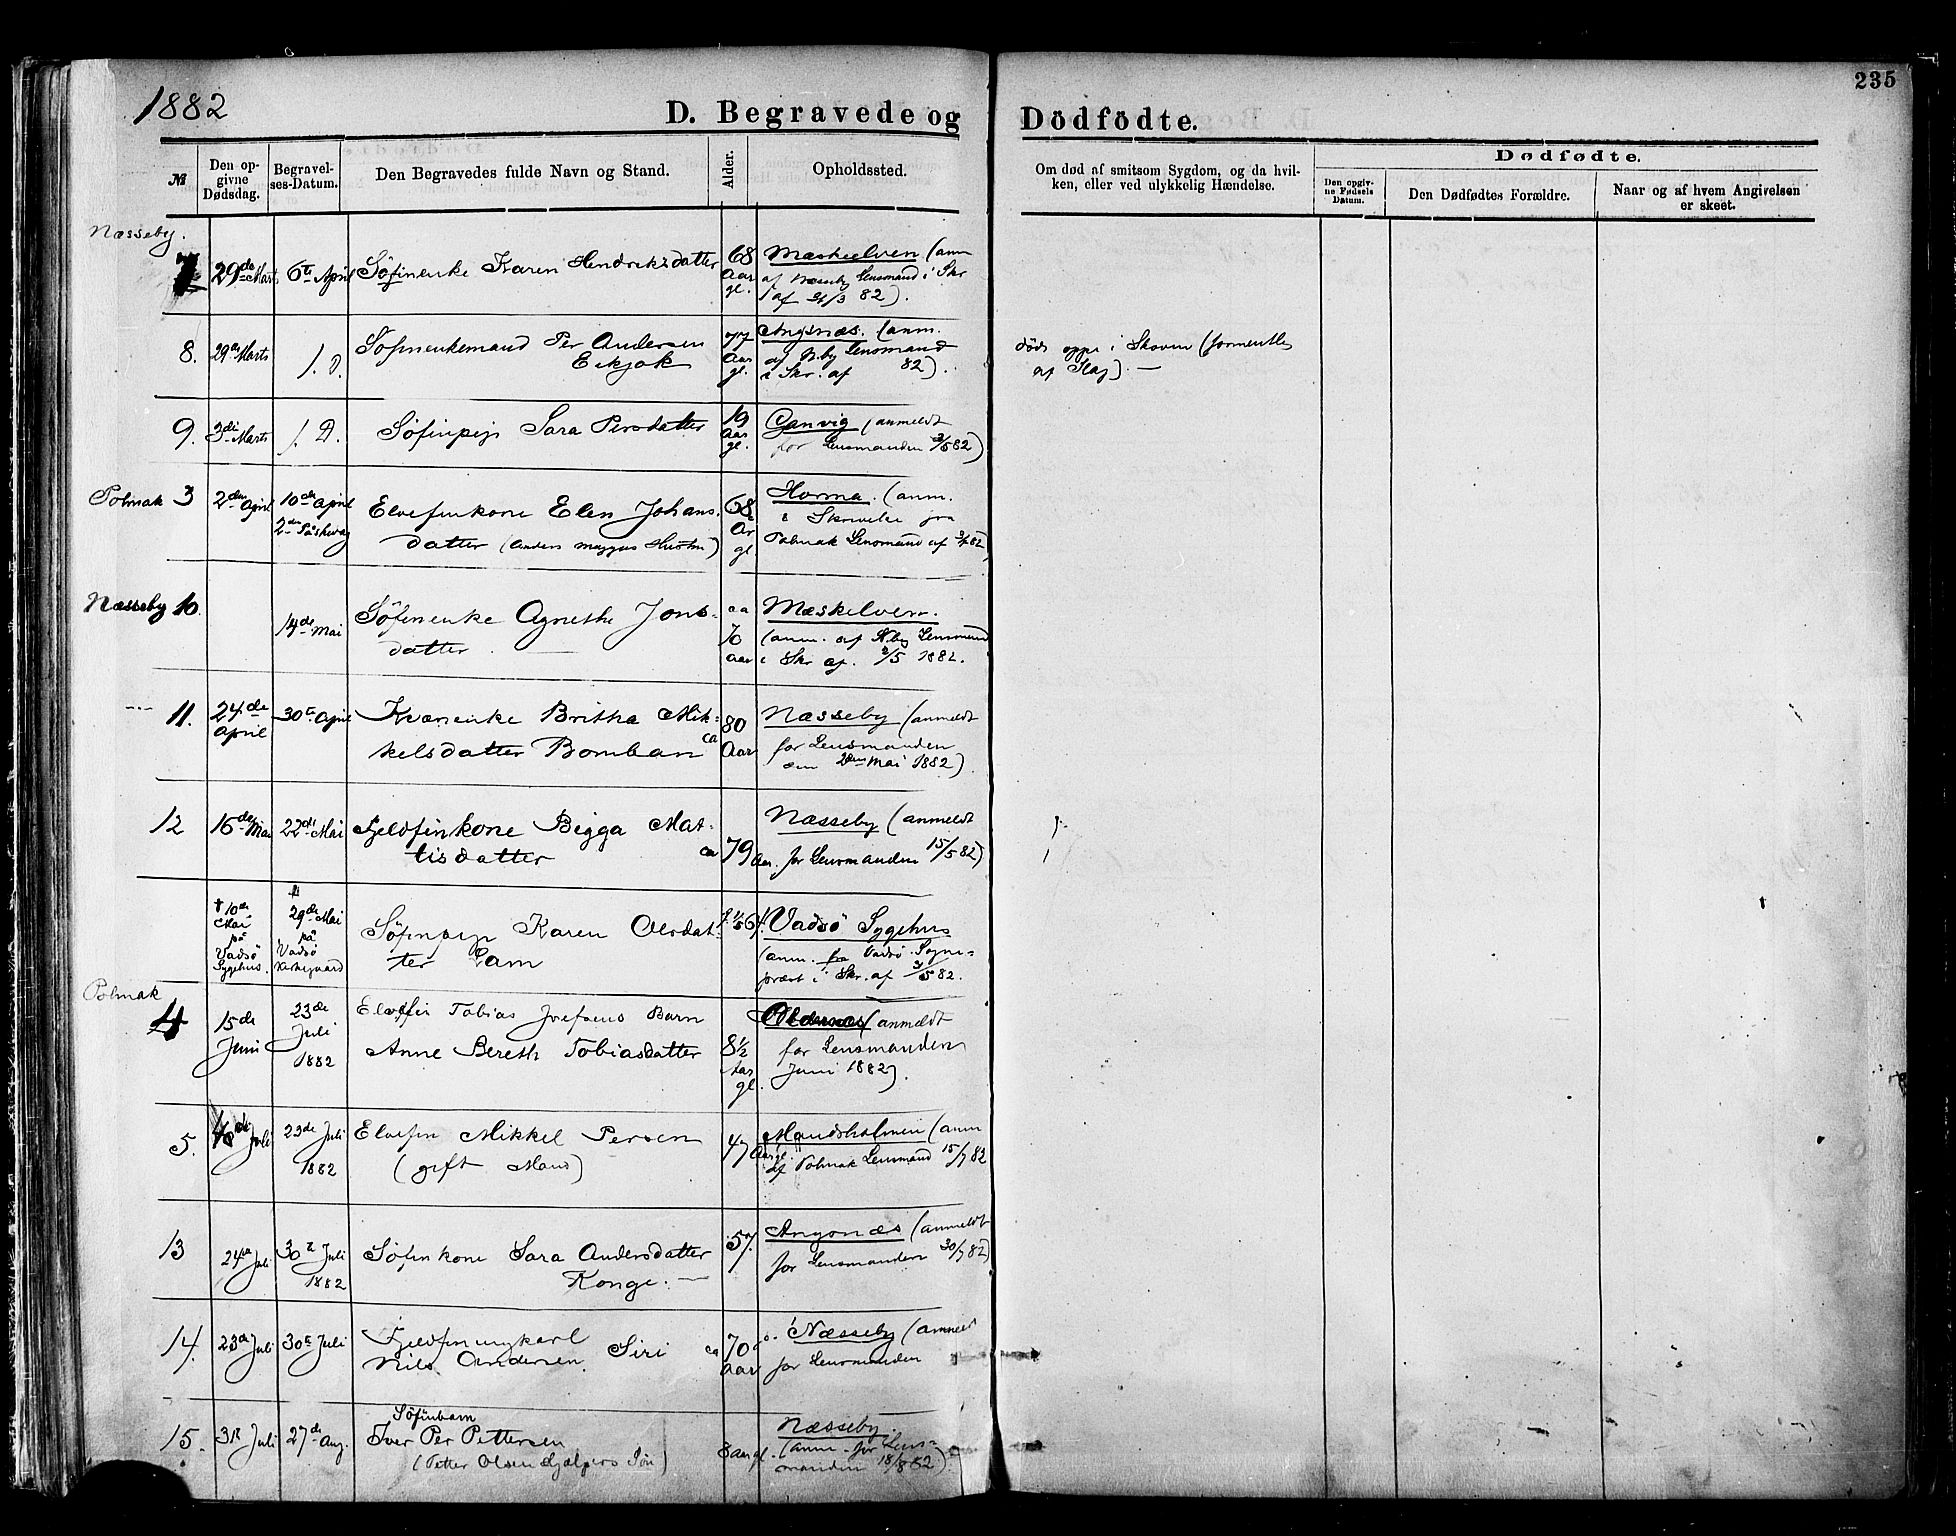 235
1882
D. Begravede og Dödfödte.
№
Den op-
givne
Dødsdag.
Begravel-
ses-Datum.
Den Begravedes fulde Navn og Stand.
Alder.
Opholdssted.
Om død af smitsom Sygdom, og da hvil-
ken, eller ved ulykkelig Hændelse.
Dødfødte.
Den opgiv-
ne Fødsels
Datum.
Den Dødfødtes Forældre.
Naar og af hvem Angivelsen
er skeet.
Næsseby.
7 29de Marts 6te April Söfinenke Karen Hendriksdatter 68 Aar gl. Mæskelven (anm
af Næsseby Lensmand i Skr
af /3 82).
8. 29de Marts /. D. Söfinenkemand Per Andersen
Eikjok
77 Aar gl. Angsnæs. (anm.
af N.by Lensmand
i Skr. af 82).
död oppe i Skoven (formentlig
af Slag). —
9. 3die Marts /. D. Söfinpige Sara Persdatter 19 Aar gl. (anmeldt
for Lensmanden 3/5 82)
Polmak 3 2den April 10de April
2den Påskedag
Elvefinkone Elen Johans-
datter (Anders Hustru)
68 Ar gl Horma. (anm.
i Skrivelse fra
Polmak Lensmand af 82
Næsseby 10. 14de Mai Söfinenke Agnethe Jons-
datter.
ca 70 aar Mæskelven.
(anm. af N.by Lensmand
i Skr af. 2/5 1882.
11. 24de
April
30te April Kvænenke Britha Mik-
kelsdatter Bomban
ca 80 Aar Næsseby (anmeldt
for Lensmanden
den 2den Mai 1882)
12 16de Mai 22de Mai Fjeldfinkone Bigga Mat-
tisdatter
ca 79 Aar. Næsseby (anmeldt
for Lensmanden 15/5 82)
† 10de
Mai
på
Vadsö
Sygehus.
29de Mai
på
Vadsö
Kirkegaard
Söfinpige Karen Olsdat-
ter Lam
Vadsö Sygehus
(anm. fra Vadsö Sogne-
præst i Skr. af /5 82.
Polmak
4 15de
Juni
23de
Juli
1882
Elvefin Tobias Josefsens Barn
Anne Bereth Tobiasdatter
8½ Aar gl. (anmeldt
for Lensmanden
Juni 1882).
5. Juli 23de Juli
1882
Elvefin Mikkel Persen
(gift Mand)
47 Aar gl. Mandsholmen (anm
af Polmak Lensmand 15/7 82
13 24de Juli 30te Juli
1882
Söfinkone Sara Andersdatter
Konge. —
57. Angsnæs (anmeldt
for Lensmanden 30/7 82)
14. 23de Juli 30te Juli Fjeldfinungkarl
Nils Andersen. Siri
ca 70 Aar Næsseby (anmeldt
for Lensmanden
15. 31te Juli 27de Aug. Söfinbarn
Iver Per Pettersen
(Petter Olsen Hjælpers Sön)
8 aar gl. Næsseby.
(anm. for Lens-
manden 18/8 82).